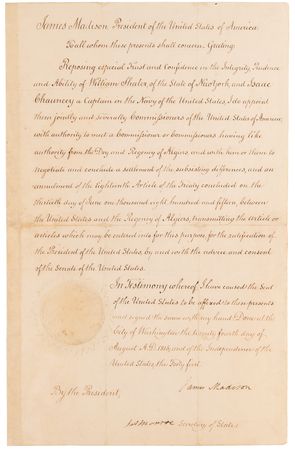 James Madison, President of the United States of America
To all whom these presents shall concern, Greeting:
Reposing especial Trust and Confidence in the Integrity, Prudence
and Ability of William Shaler, of the State of New York, and Isaac
Chauncey a Captain in the Navy of the United States, I do appoint
them jointly and severally Commissioners of the United States of America,
with authority to meet a Commissioner or Commissioners having like
authority from the Dey and Regency of Algiers, and with him or them to
negotiate and conclude a settlement of the subsisting differences, and
an annulment of the eighteenth Article of the Treaty concluded on the
thirtieth day of June one thousand eight hundred and fifteen, between
the United States and the Regency of Algiers, transmitting the article or
articles which may be entered into for this purpose, for the ratification of
the President of the United States, by and with the advice and consent
of the Senate of the United States.
In Testimony whereof I have caused the Seal
of the United States to be affixed to these presents
and signed the same with my hand. Done at the
City of Washington the twenty fourth day of
August A.D. 1816, and of the Independence of the
United States, the Forty first.
James Madison
By the President,
Jas Monroe Secretary of State